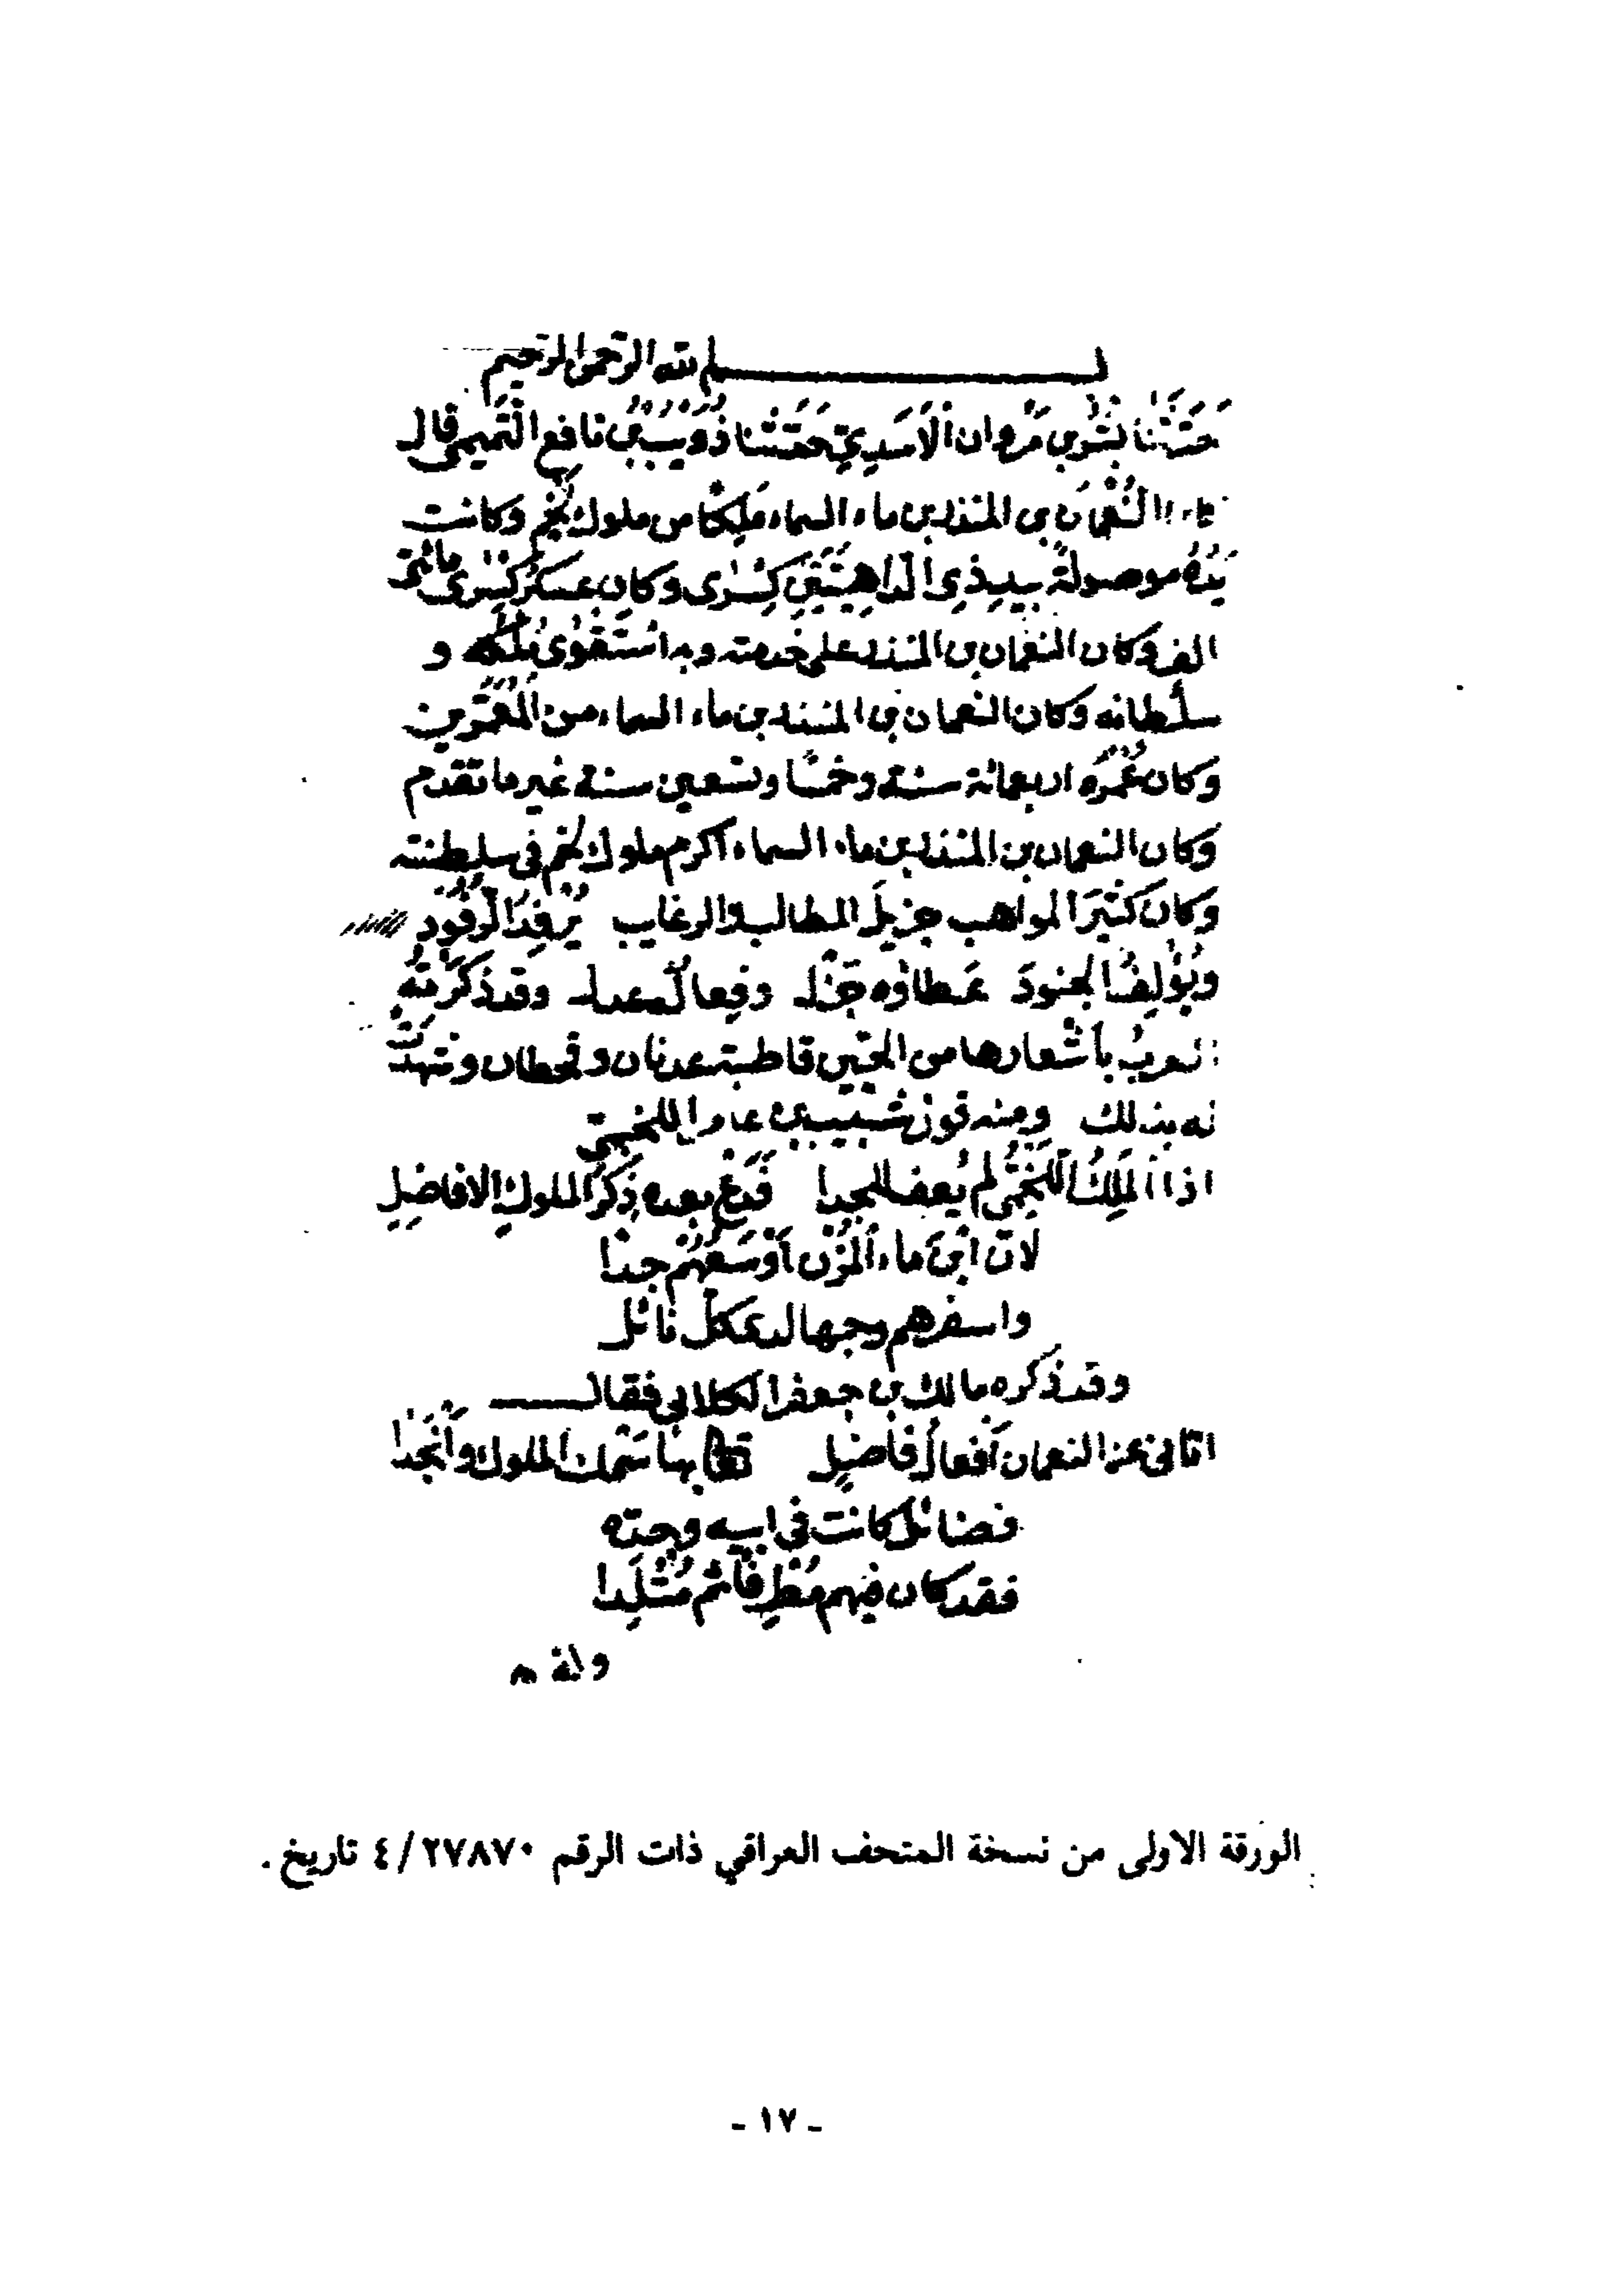 بسم الله الرحمن الرحيم
حَدَّثَنَا بِشْرُ بن مَرْوان الأَسَدِيّ حَدَّثَنا ذُؤَيْبُ بْنُ نافع التَّميمي قال
النُّعْمَان بن المنذر بن ماء السماء مَلِكًا من ملوك لَخْمٍ وكانت
يَدُهُ موصولةً بيد ذي الدّاهِيَتَيْنِ كِسْرٰى وكان عسكرُ كِسْرٰى مائتى
الف وكان النعمان بن المنذر على خدمته وبه اسْتَقْوٰى مُلْكُه و
سلطانه وكان النعمان بن المنذر بن ماء السماء من المُعَمَّرين
وكان عُمُرُه اربعمائة سنة وخمسًا وتسعين سنة غير ما تقدم
وكان النعمان بن المنذر بن ماء السماء اكرم ملوك لخم في سلطنته
وكانَ كثيرَ المواهب جزيلَ المطالب والرغايب يُرْفِدُ الوُفُودَ
ويُؤلِفُ الجنودَ عَطاؤه جَزْل وفِعالُه عدل وقد ذَكَرَتْهُ
العربُ بأَشْعارها من الحيَّين قاطبة عدنان وقحطان وشهدَتْ
له بذلك ومنه قول شبيب بن عامر اللخميّ
اذا المَلِكُ اللَّخْمِيُّ لم يُعفِ للجدا فَدَعْ بعده ذِكْرَ الملوكِ الافاضِلِ
لانّ ابْنَ ماء المُزْنِ أَوْسَعُهُمْ جدًا
واسفرهم وجها لدى كل نائل
وقد ذكره مالك بن جعفر الكلابي فقال
اتاني عن النعمان أَفعالُ فاضِلٍ بها سَمْك الملوك وأَنْجَدا
فضائل كانت في ابيه وجدّه
فقد كان فيهم مُطْرِفًا ثم مُتْلِدا
وله
الورقة الاولى من نسخة المتحف العراقي ذات الرقم ٢٧٨٧٠/٤ تاريخ.
- ١٧ -